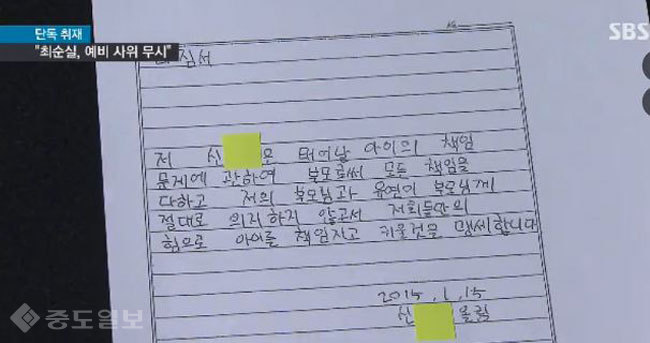 단독 취재
"최순실, 예비 사위 무시"
SBS
심서
저 신 은 태어날 아이의 책임
문제에 관하여 부모로써 모든 책임을
다하고 저의 부모님과 유연이 부모님께
절대로 의지하지 않고서 저희둘만의
힘으로 아이를 책임지고 키울것을 맹세합니다
2015.1.15
신 올림
중도일보